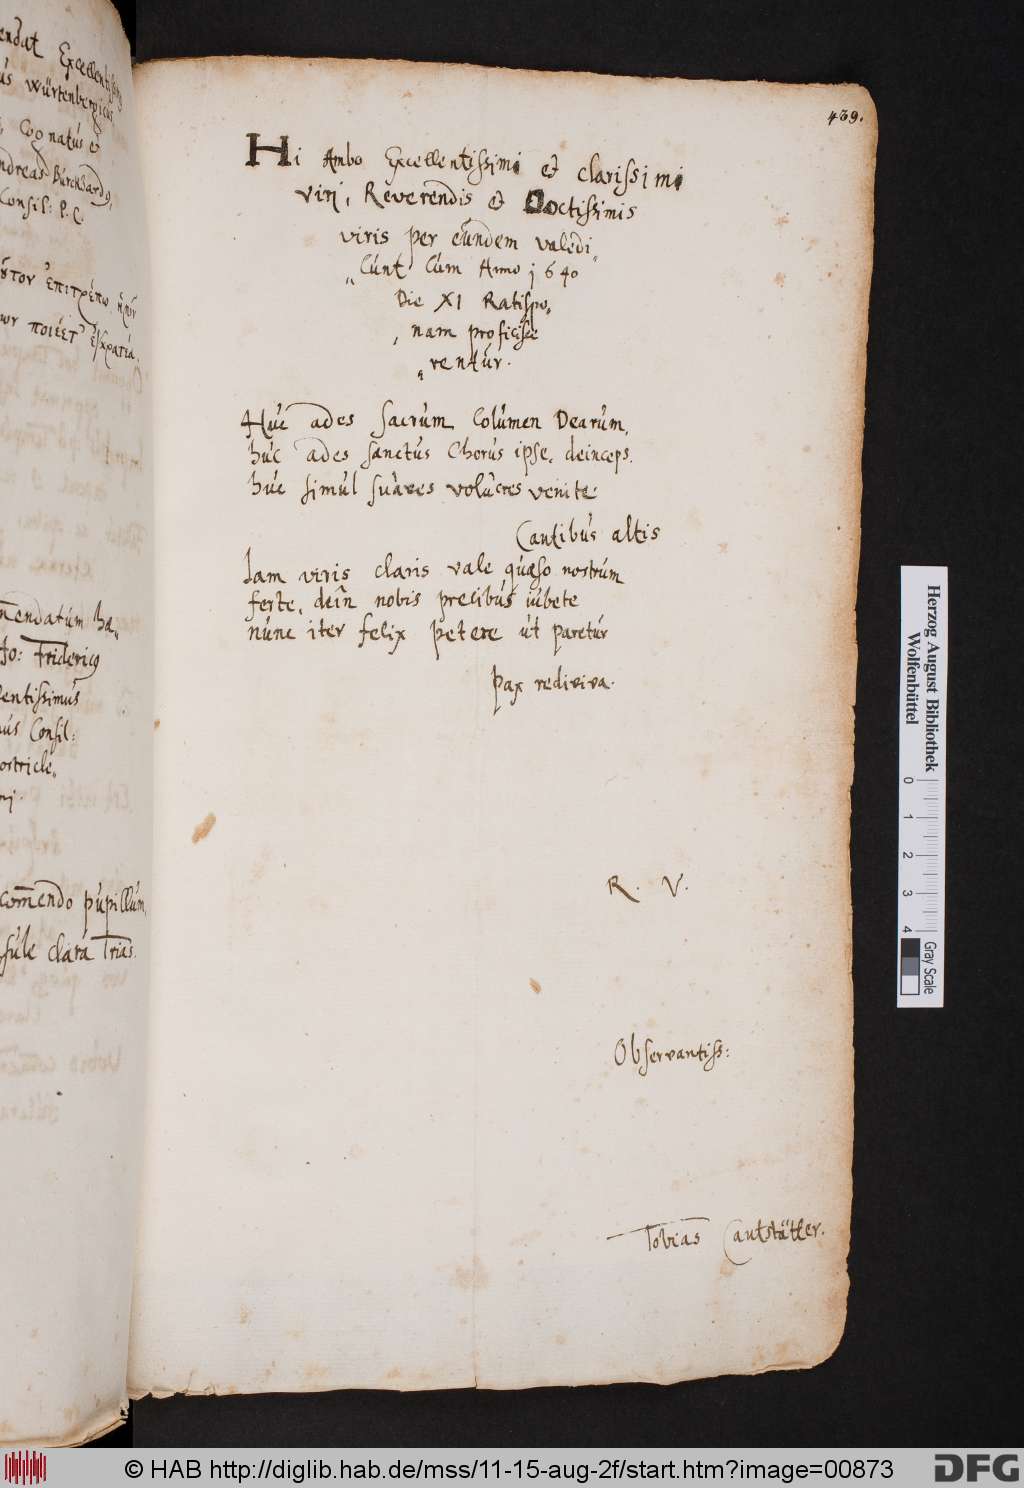 endat Excellentissimus
us würtenbergicus
Cognatus et
ndreas Burckhardus,
Consil: P. C.
ἐπιτρέπω
ποιέετ
mendatum ha„
Jo: Fridericus
lentissimus
us Consil:
ostricle„
nj.
comendo pupillum,
sule clara Trias.
439.
Hi Ambo Excellentissimi et clarissimi
viri, Reverendis et Doctissimis
viris per eundem valedi„
„cunt Cum Anno j640
Die XI Ratispo„
„nam proficisce
„rentur.
Huc ades sacrum Columen Dearum,
huc ades sanctus Chorus ipse, deinceps.
huc simul suaves volucres venite
Cantibus altis
Iam viris claris vale quæso nostrum
ferte, dein nobis precibus iubete
nunc iter felix petere ut paretur
pax rediviva.
R. V.
Observantiss:
Tobias Cantstätter.
Herzog August Bibliothek
Wolfenbüttel
0 1 2 3 4
Gray Scale
© HAB http://diglib.hab.de/mss/11-15-aug-2f/start.htm?image=00873
DFG